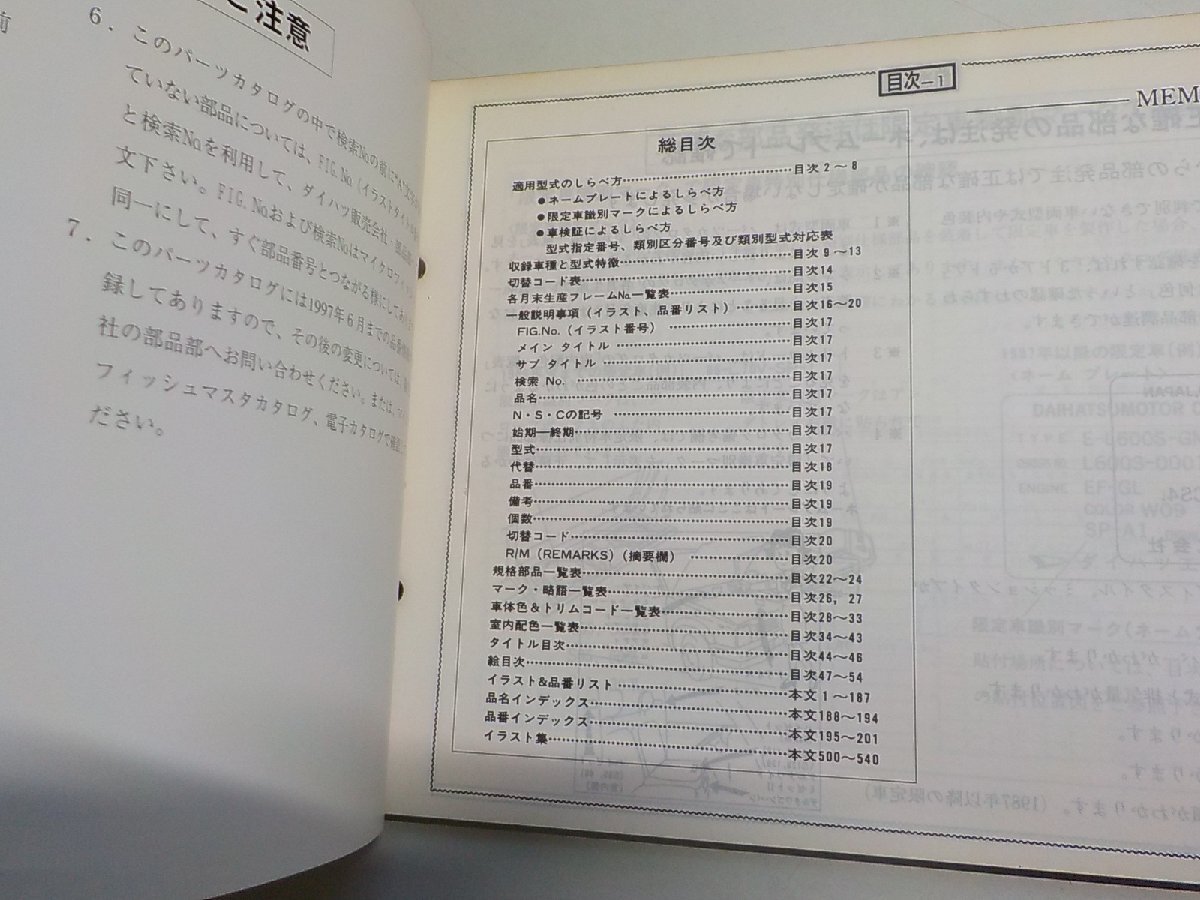 前
ご注意
6．このパーツカタログの中で検索Noの前に
ていない部品については、FIG.No（イラストタイトル
と検索Noを利用して、ダイハツ販売会社、部品
文下さい。FIG.Noおよび検索Noはマイクロフィ
同一にして、すぐ部品番号とつながる様にしてあり
7．このパーツカタログには1997年6月までの
録してありますので、その後の変更については、
社の部品部へお問い合わせください。または、
フィッシュマスタカタログ、電子カタログで
ださい。
目次－1
MEM
総目次
適用型式のしらべ方……目次2～8
●ネームプレートによるしらべ方
●限定車識別マークによるしらべ方
●車検証によるしらべ方
型式指定番号、類別区分番号及び類別型式対応表
収録車種と型式特徴……目次9～13
切替コード表……目次14
各月末生産フレームNo一覧表……目次15
一般説明事項（イラスト、品番リスト）……目次16～20
FIG.No.（イラスト番号）……目次17
メイン タイトル……目次17
サブ タイトル……目次17
検索 No.……目次17
品名……目次17
N・S・Cの記号……目次17
始期―終期……目次17
型式……目次17
代替……目次18
品番……目次19
備考……目次19
個数……目次19
切替コード……目次20
R/M（REMARKS）（摘要欄）……目次20
規格部品一覧表……目次22～24
マーク・略語一覧表……目次26, 27
車体色＆トリムコード一覧表……目次28～33
室内配色一覧表……目次34～43
タイトル目次……目次44～46
絵目次……目次47～54
イラスト＆品番リスト……本文1～187
品名インデックス……本文188～194
品番インデックス……本文195～201
イラスト集……本文500～540